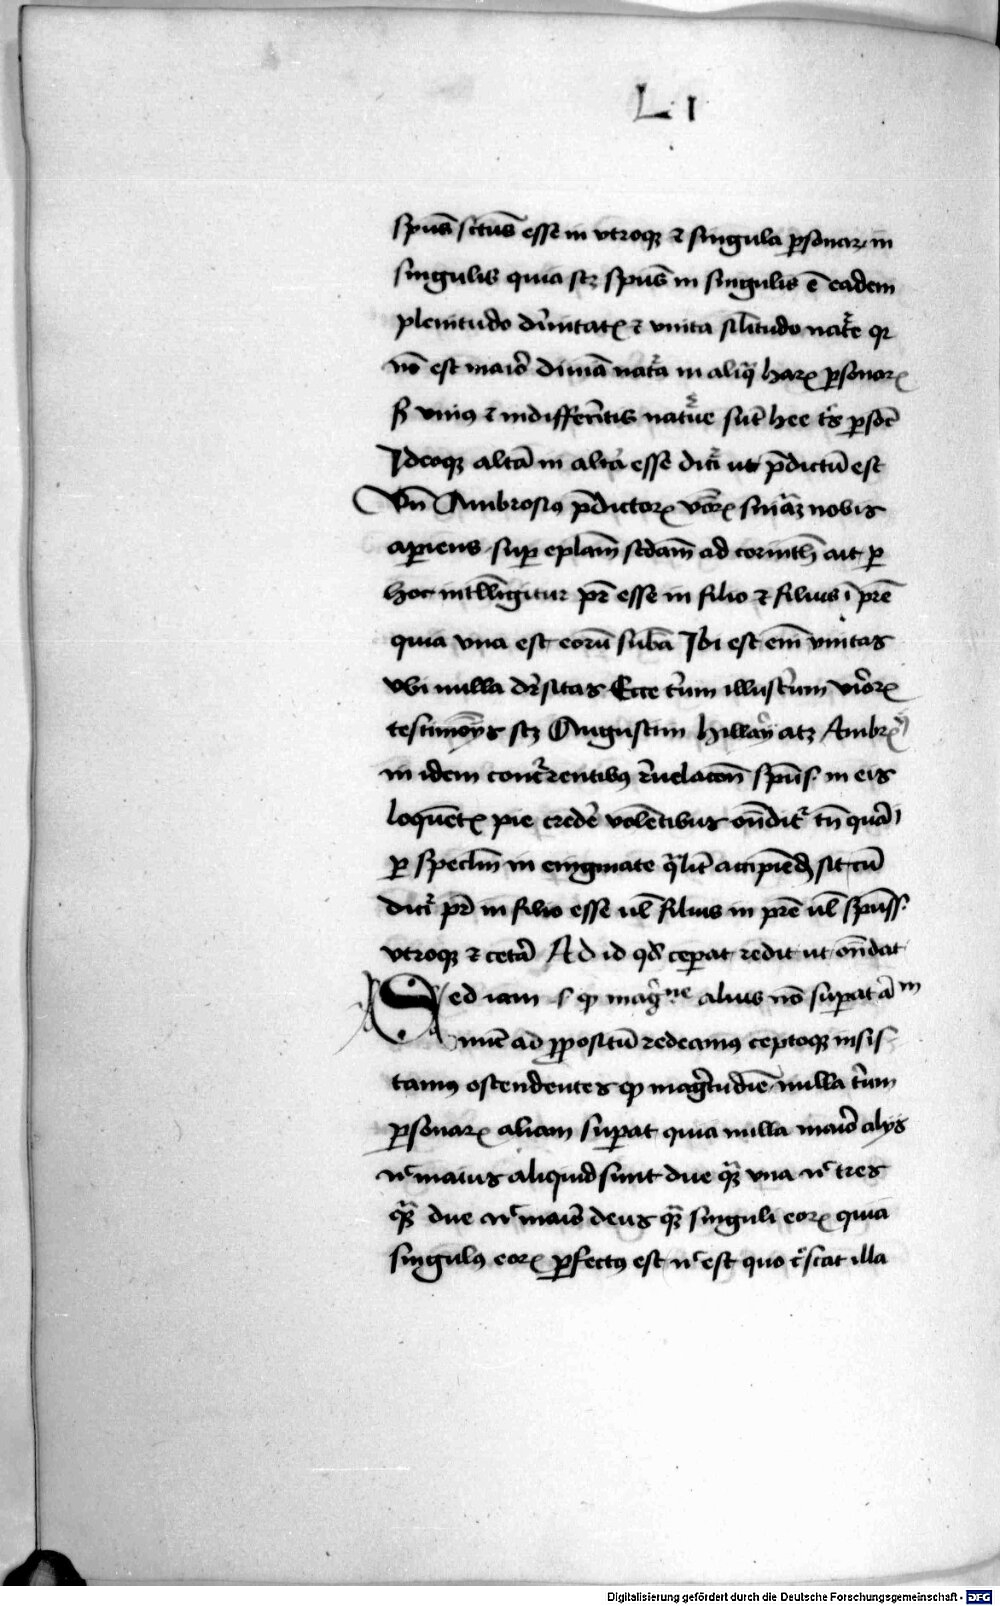 L I
spūs sctūs esse in vtroqꝫ ⁊ singula ꝑsonaꝝ in
singulis quia scꝫ spūs in singulis ē eadem
plenitudo diuītatꝭ ⁊ vnita silītudo natᵉe qꝛ
nō est maiō diuīa natᵃa in aliqᵃ haꝝ ꝑsonaꝝ
ß vniꝰ ⁊ indifferētis natuᵉe sūt hee tᵉs ꝑsōe
Ideoqꝫ altā in altᵃa esse dicīᵗ ut p̄dictū est
Vn̄ Ambrosiꝰ p̄dictoꝝ vᵉoꝝ snīaꝫ nobis
aꝑiens suꝑ eplām scdām ad corinth ait ꝑ
hoc intlligitur pr̄ esse in filio ⁊ filius ī prē
quia vna est eorū subā Ibi est em̄ vnitas
vbi nulla dīsitas Ecce tⁱum illustⁱum vⁱoꝝ
testimōijs scꝫ Augustini hillarij atqꝫ Ambꝝ
in idem concᵉrentibꝰ ēuelacōn̄ spūs in eis
loquētꝭ pie credē volētibus on̄ditᵗ tn̄ quāi
ꝑ speclm̄ in enigmate qᵃlit̄ accipiēd sit cū
diciᵗ pr̄ in filio esse ul̄ filius in prē ul̄ spūss
vtroqꝫ ⁊ cetā Ad id qd̄ ceꝑat redit ut on̄dat
Sed iam s ꝙ magⁱne alius nō suꝑat ām
nūc ad ꝓpositū redeamꝰ ceptoqꝫ insis
tamꝰ ostendentes ꝙ magⁱtudīe nulla tⁱum
ꝑsonaꝝ aliam suꝑat quia nulla maiō alijs
nᶜ maius aliquid sunt due qᵃꝫ vna nᶜ tres
qᵃꝫ due nᶜ maiō deus qᵃꝫ singuli eoꝝ quia
singulꝰ eoꝝ ꝑfectꝰ est nᶜ est quo cᵉscat illa
Digitalisierung gefördert durch die Deutsche Forschungsgemeinschaft - DFG